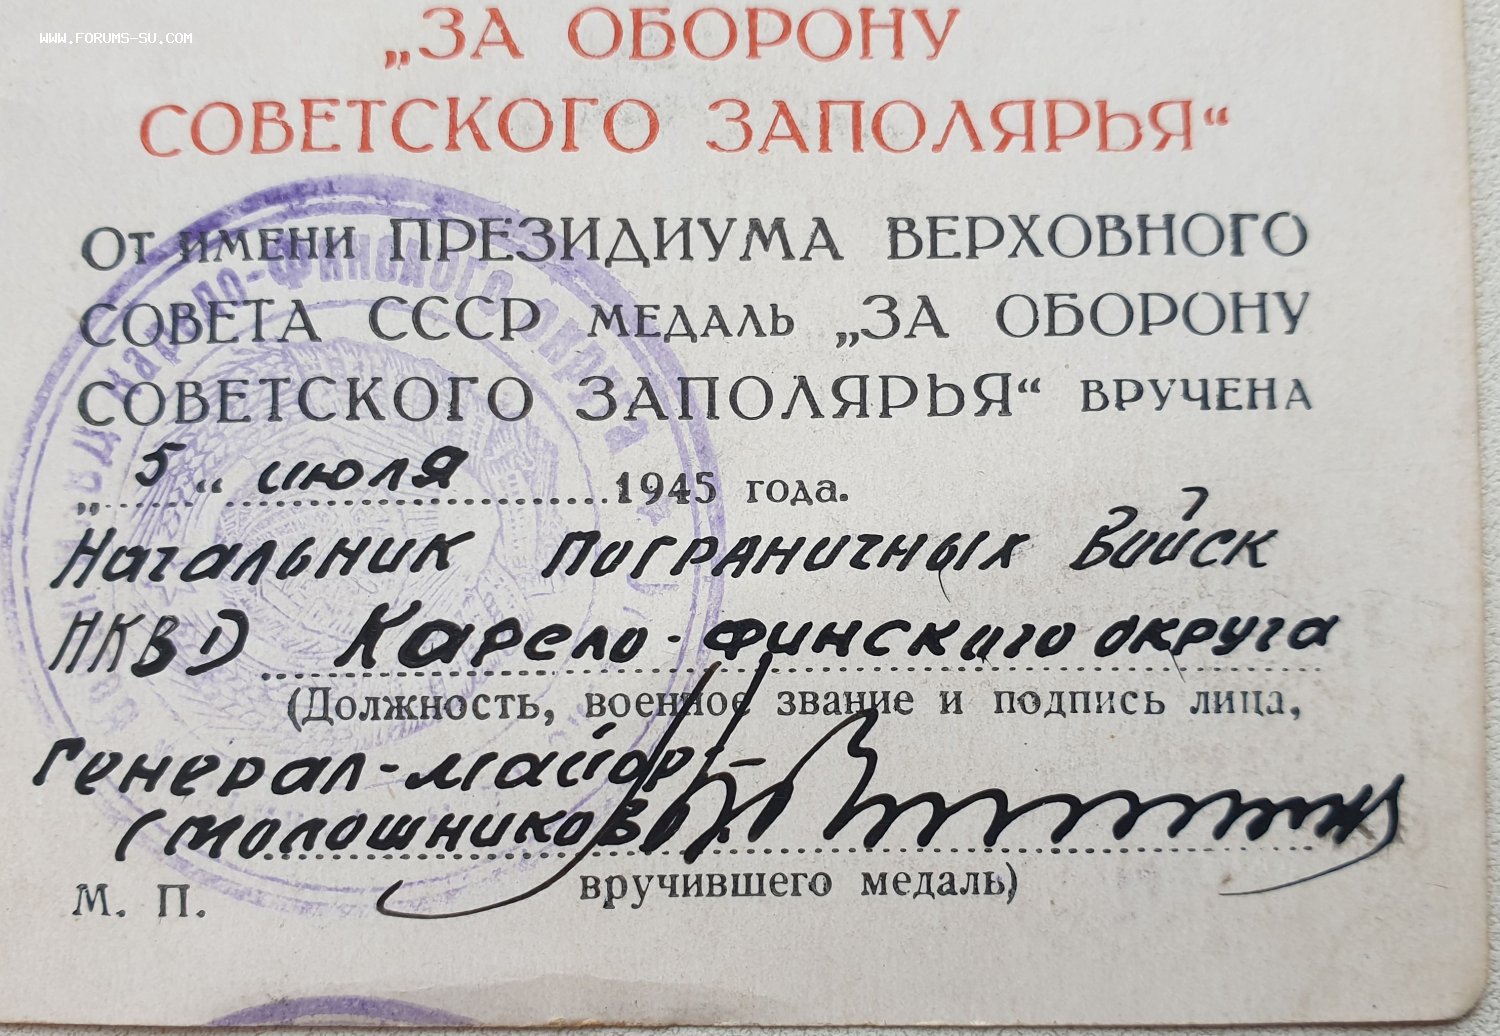 WWW.FORUMS-SU.COM
„ЗА ОБОРОНУ
СОВЕТСКОГО ЗАПОЛЯРЬЯ“
От имени ПРЕЗИДИУМА ВЕРХОВНОГО
СОВЕТА СССР медаль „ЗА ОБОРОНУ
СОВЕТСКОГО ЗАПОЛЯРЬЯ“ вручена
„5“ июля 1945 года.
Начальник Пограничных Войск
НКВД Карело-финского округа
(Должность, военное звание и подпись лица,
Генерал-майор
(Молошников
вручившего медаль)
М. П.
Карело-Финского округа